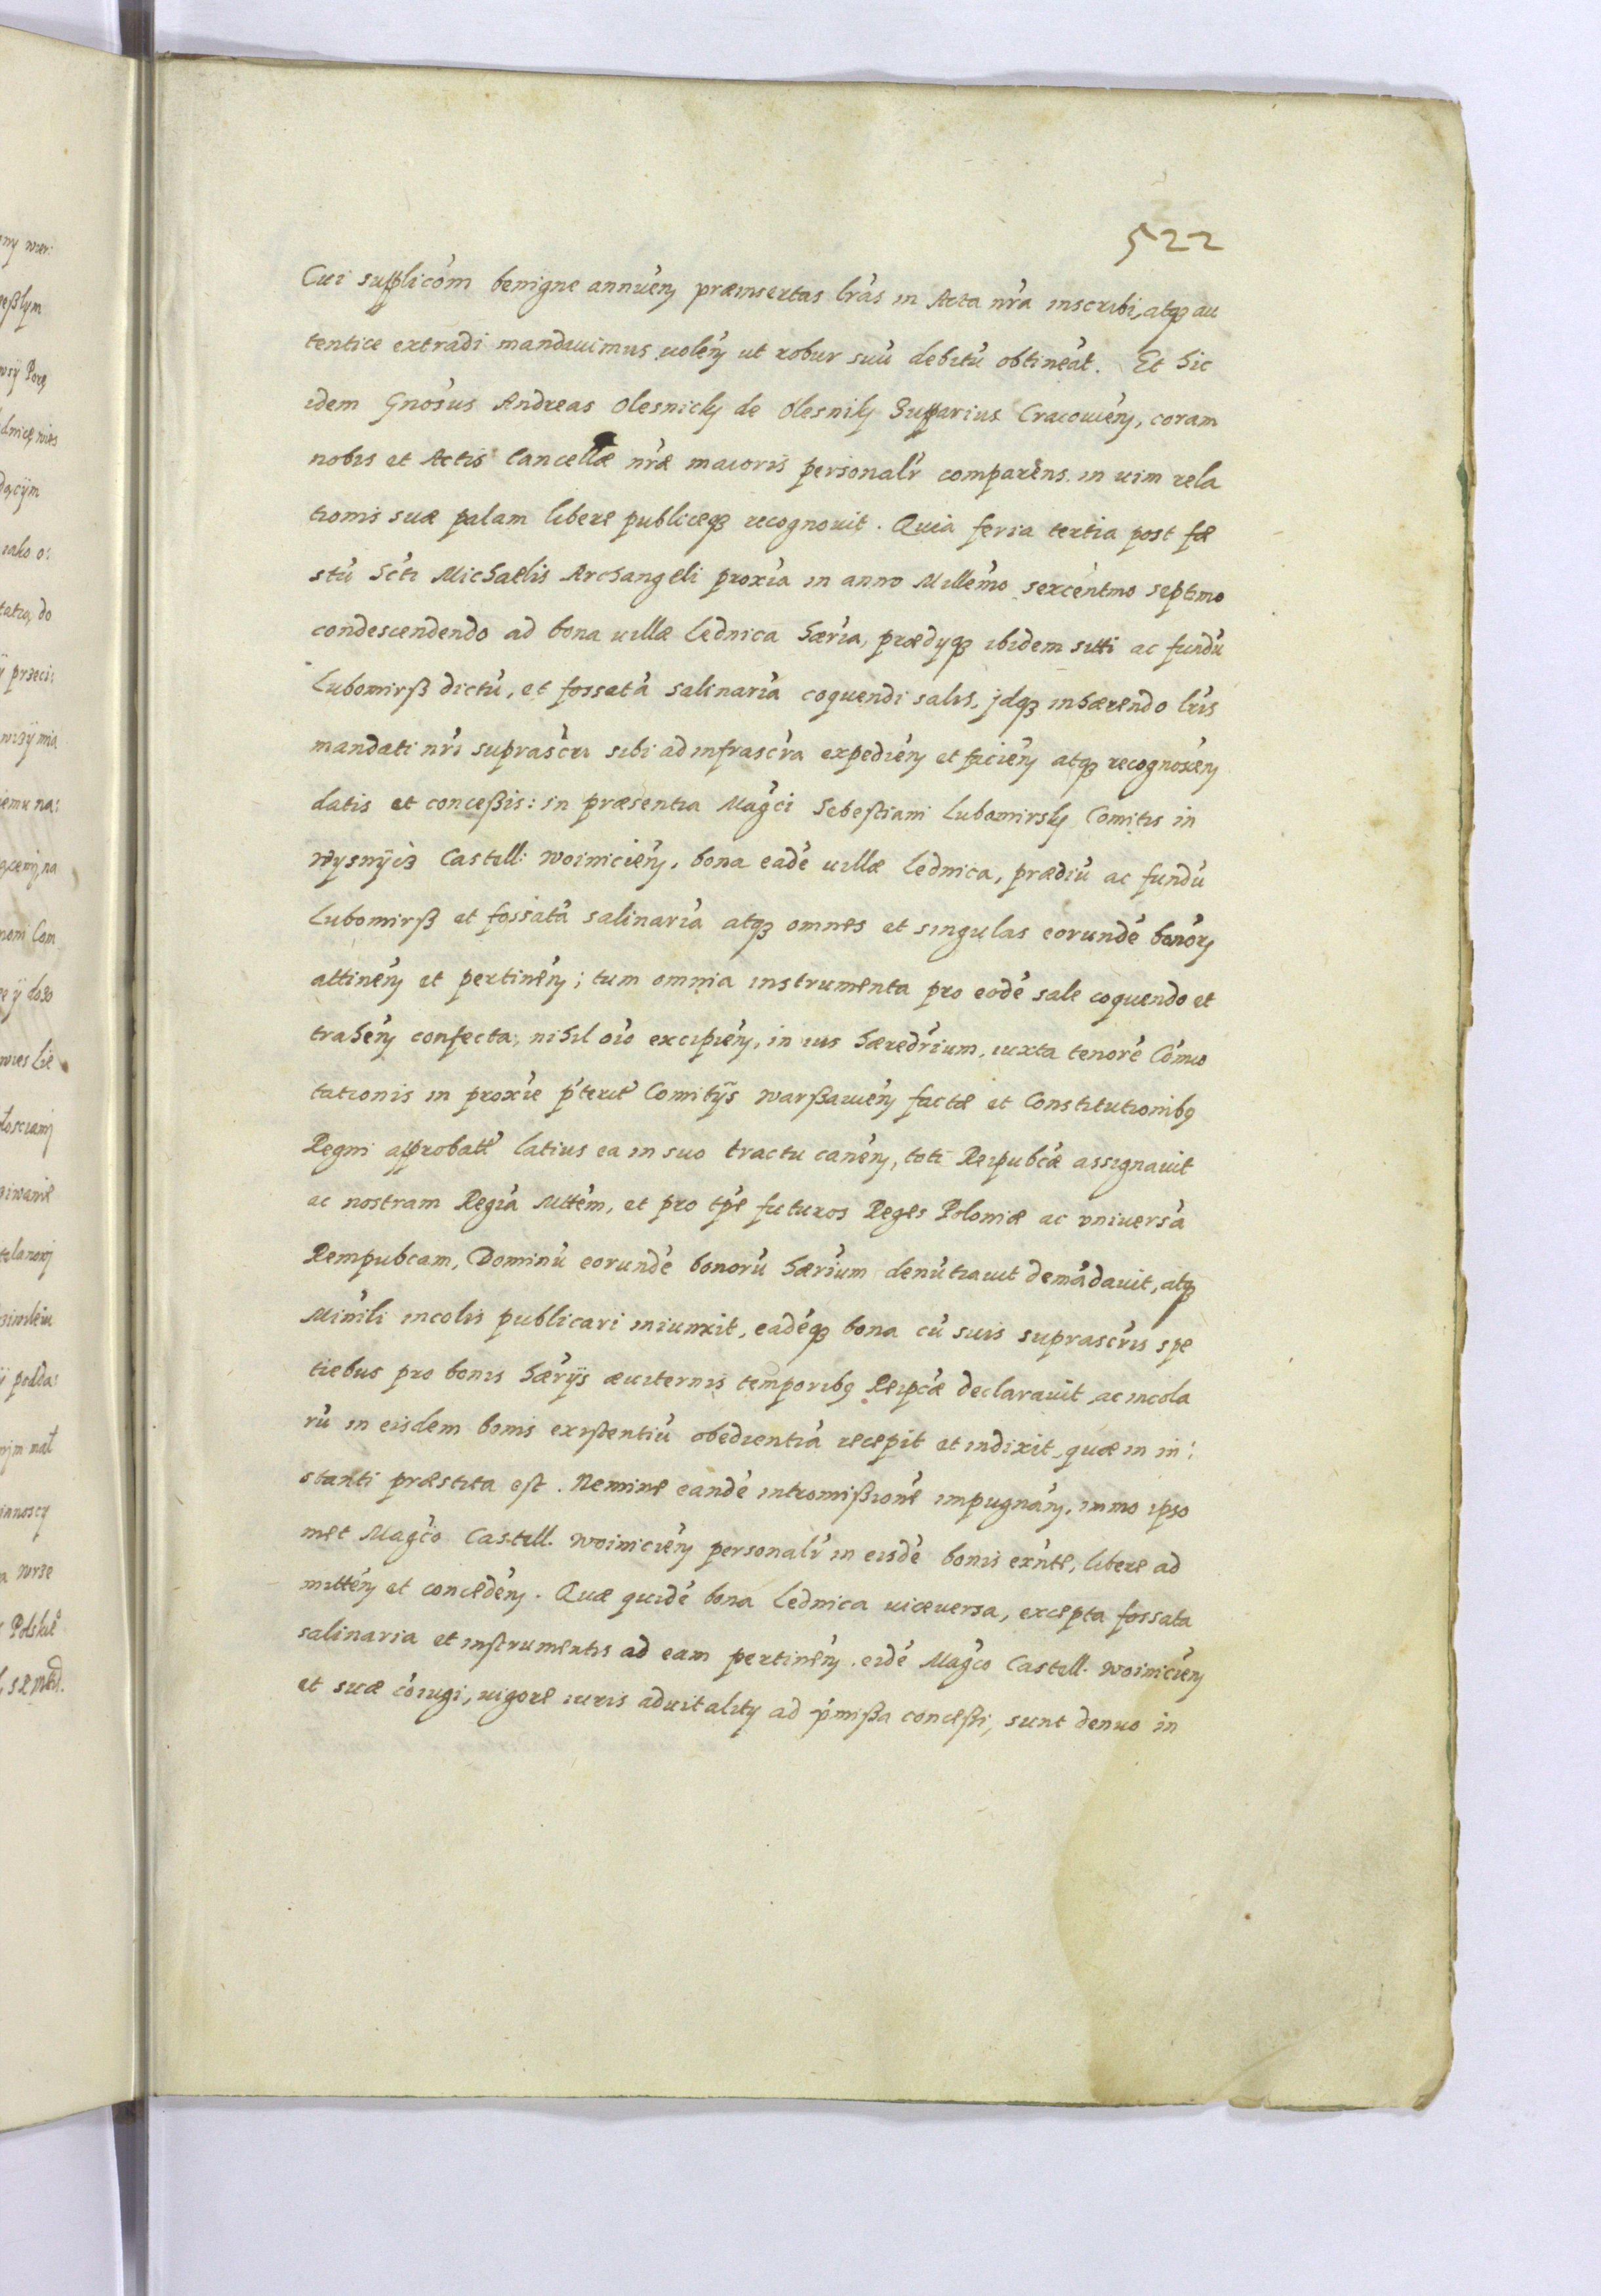 522
Cui supplicóm benigne annuéń præinsertas lrás in Acta nrá inscribi, atq₃ au
tentice extradi mandauimus uoléń ut robur suú debitú obtineát. Et hic
idem Gnósus Andreas Olesnicky de Olesniky Supparius Cracouień, coram
nobis et Actis Cancellæ nræ maioris personalr comparéns. in uim rela
tionis suæ palam libere publiceq₃ recognouit. Quia feria tertia post fe
stú Scti Michaelis Archangeli proxiá in anno Millemo sexcéntmo septimo
condescendendo ad bona uillæ Lednica hæria, prædyq₃ ibidem sitti ac fundú
Lubomirß dictú, et fossatá salinariá coquendi salis, jdq₃ inhærendo lris
mandati nri suprascri sibi ad infrascra expediéń et faciéń atq₃ recognosceń
datis et conceßis: in præsentia Magci Sebestiani Lubomirsky Comitis in
Wysnÿcz Castell: Woiniciéń, bona eadé uillæ Lednica, prædiú ac fundú
Lubomirß et fossatá salinariá atq₃ omnes et singulas eorundé bonorꝫ
attinéń et pertinéń; tum omnia instrumenta pro eodé sale coquendo et
trahéń confecta, nihil oió excipiéń, in ius hæredrium, iuxta tenoré Cómu
tationis in proxie pterit Comitÿs Warßauień factæ et Constitutionibq
Regni approbatæ latius ea in suo tractu canéń, toti Reipubcæ assignauit
ac nostram Regiá Mttém, et pro tpé futuros Reges Poloniæ ac vniversá
Rempubcam, Dominú eorundé bonorú hærium denútiauit demádauit, atq₃
Minili incolis publicari iniunxit, eadéq₃ bona cú suis suprascris spe
tiebus pro bonis hærÿs æuiternis temporibq Reipcæ declarauit ac incola
rú in eisdem bonis existentiú obedientiá recepit et indixit, quæ in in:
stanti præstita est. Nemine eandé intromißioné impugnáń, immo ipso
met Magcó Castell. Woiniciéń personalr in eisdé bonis exńte, libere ad
mittéń et concedéń. Quæ quidé bona Lednica uiceuersa, excepta fossata
salinaria et instrumentis ad eam pertinéń. eidé Magco Castell. Woiniciéń
et suæ cóiugi, uigore iuris aduitality ad pmißa conceßi, sunt denuo in